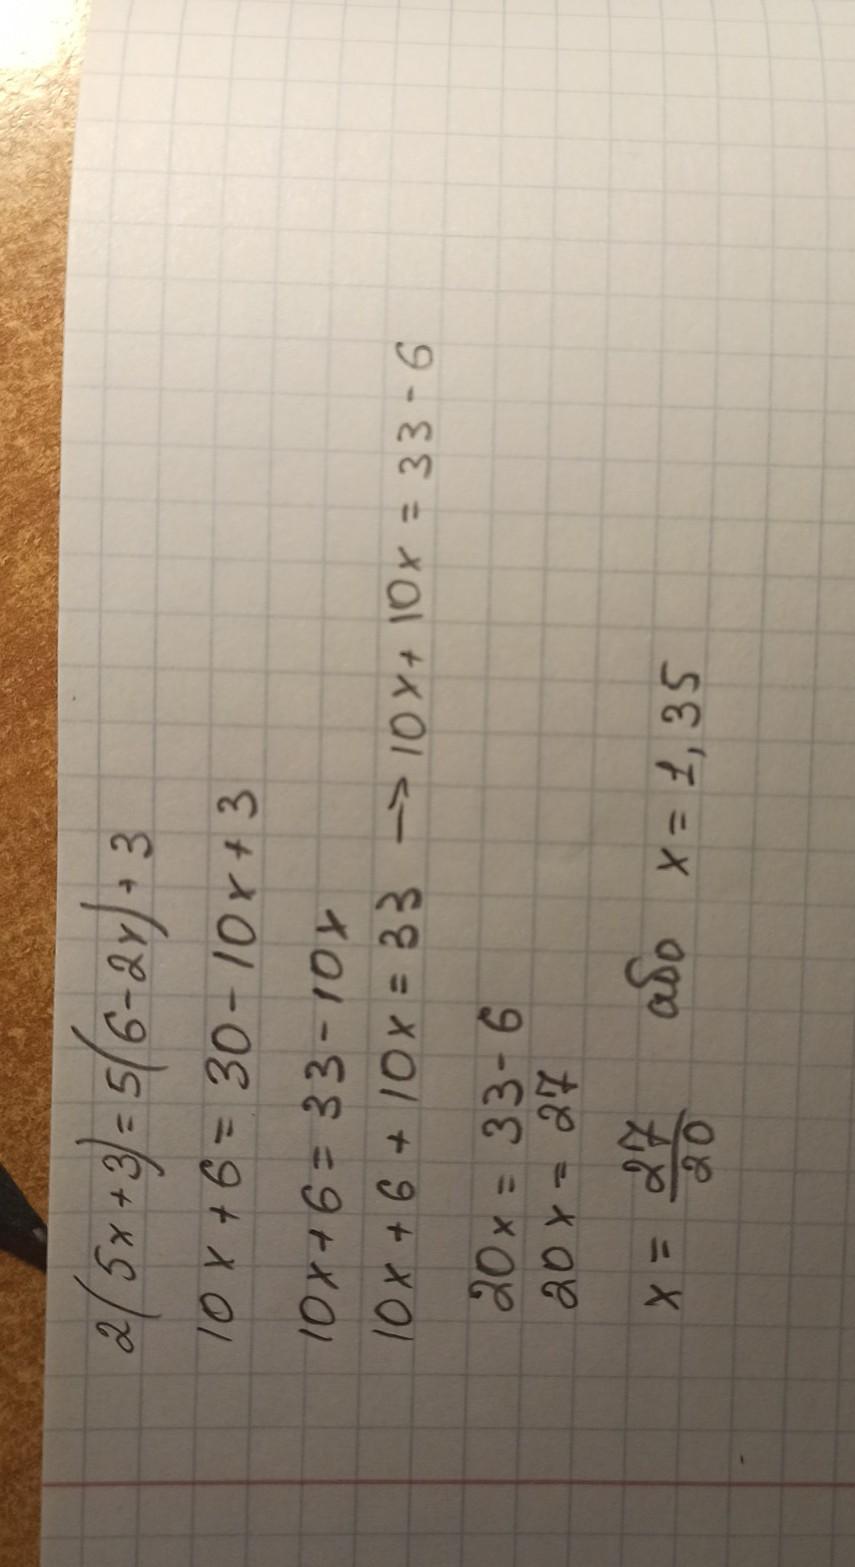 2(5x+3)=5(6-2x)+3
10x+6=30-10x+3
10x+6=33-10x
10x+6+10x=33 → 10x+10x=33-6
20x=33-6
20x=27
x=27/20 або x=1,35